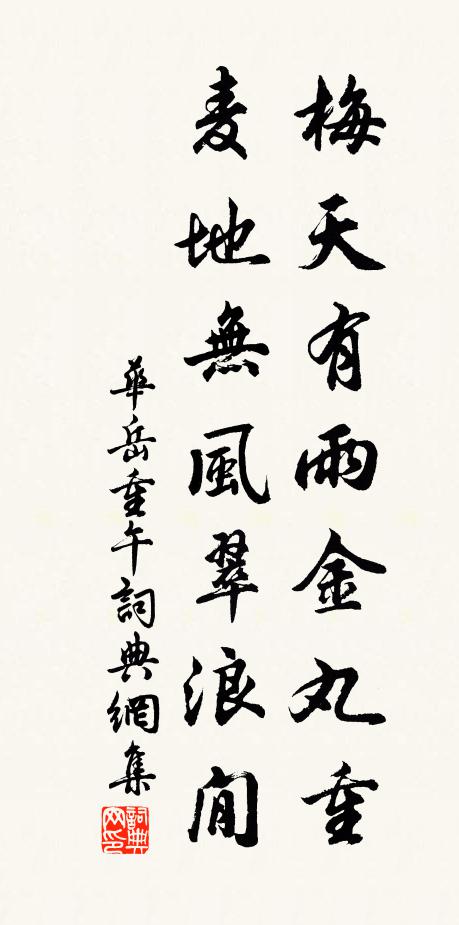 梅天有雨金丸重
麦地無風翠浪閒
華岳重午詞典網集
詞典网印